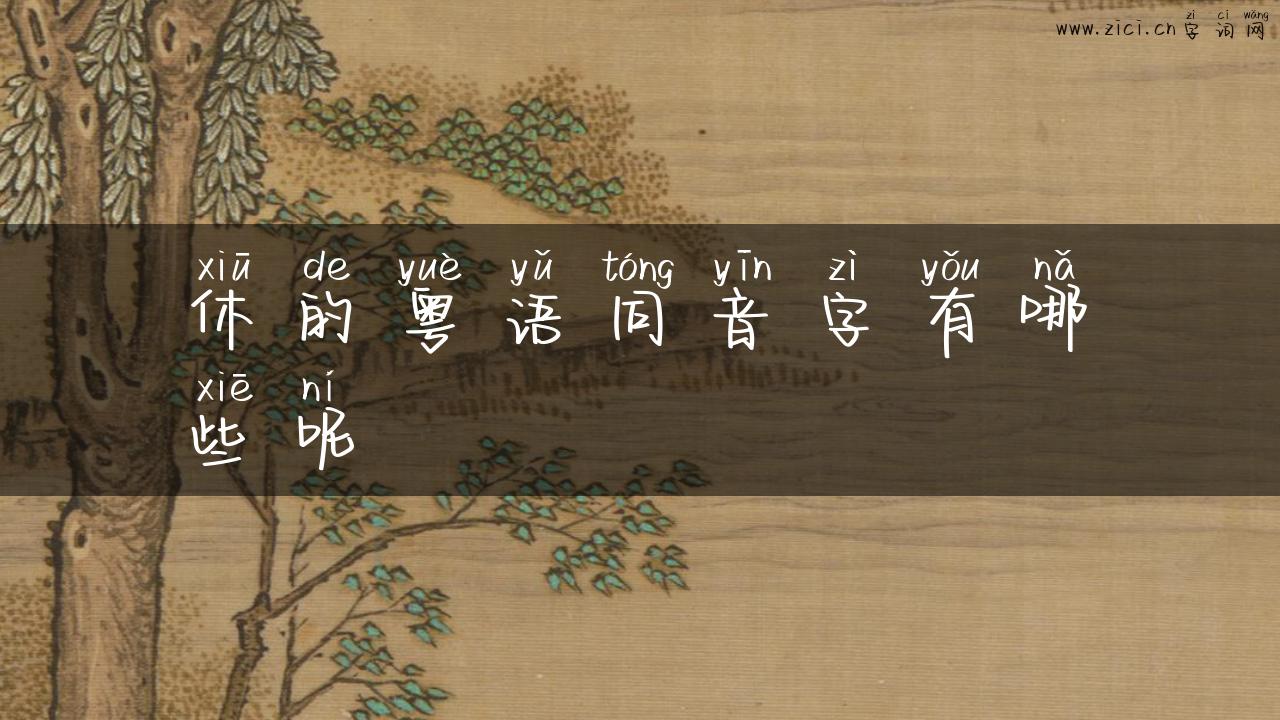 zì cí wǎng
www.zici.cn字词网
xiū de yuè yǔ tóng yīn zì yǒu nǎ
休的粤语同音字有哪
xiē ní
些呢